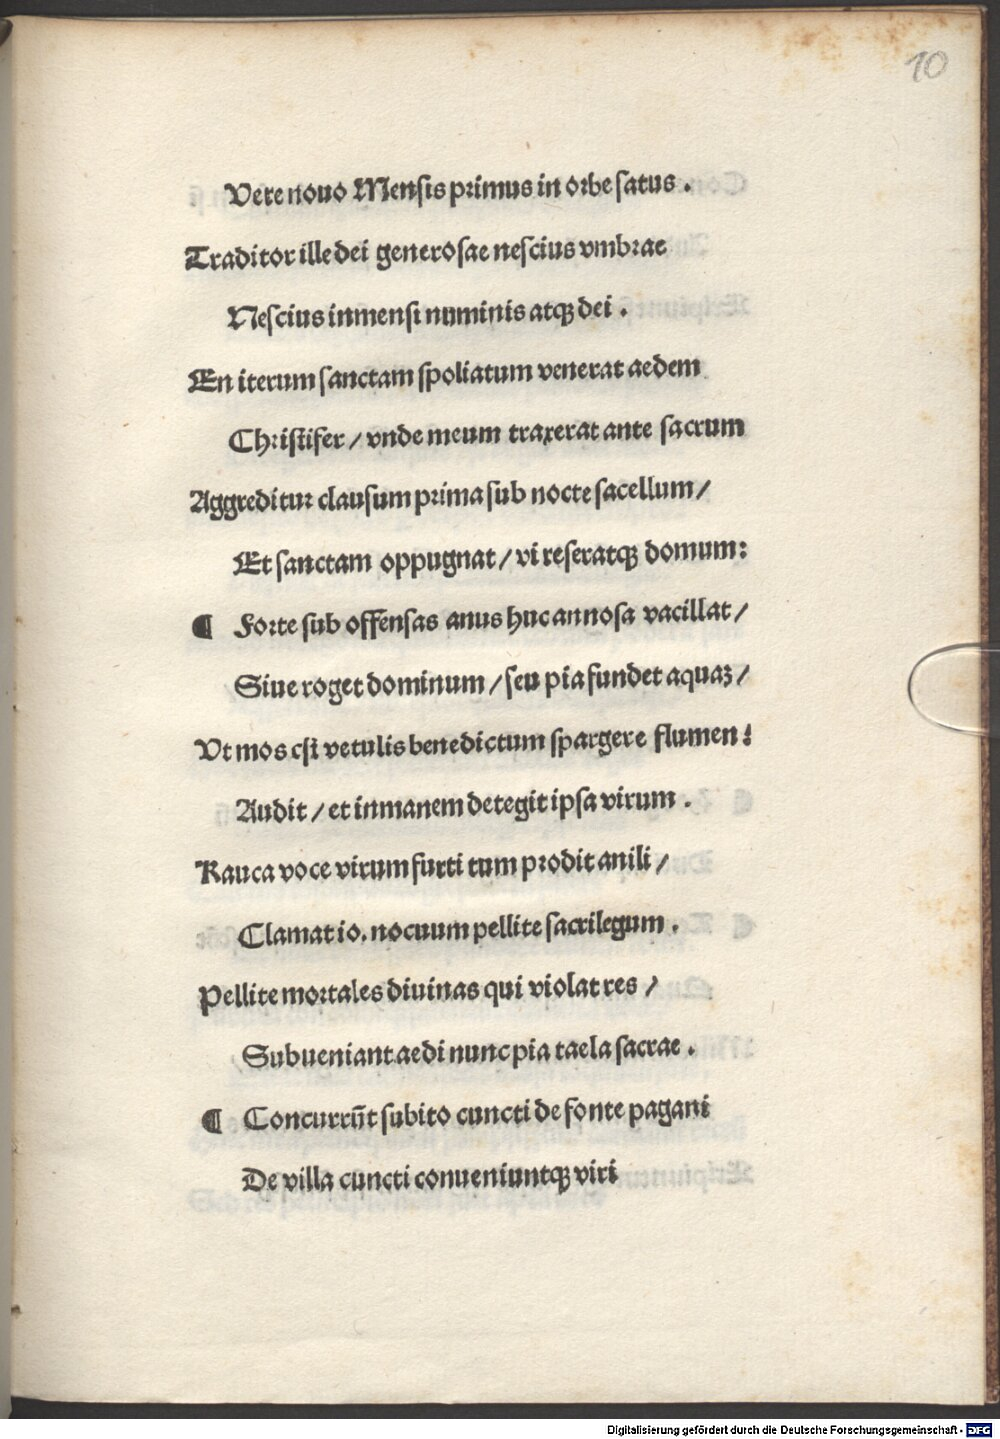 10
Vere nouo Mensis primus in orbe satus .
Traditor ille dei generosae nescius vmbrae
Nescius inmensi numinis atqꝫ dei .
En iterum sanctam spoliatum venerat aedem
Christifer / vnde meum traxerat ante sacrum
Aggreditur clausum prima sub nocte sacellum /
Et sanctam oppugnat / vi reseratqꝫ domum :
¶ Forte sub offensas anus huc annosa vacillat /
Siue roget dominum / seu pia fundet aquaꝫ /
Vt mos est vetulis benedictum spargere flumen :
Audit / et inmanem detegit ipsa virum .
Rauca voce virum furti tum prodit anili /
Clamat io. nocuum pellite sacrilegum .
Pellite mortales diuinas qui violat res /
Subueniant aedi nunc pia taela sacrae .
¶ Concurrūt subito cuncti de fonte pagani
De villa cuncti conueniuntqꝫ viri
Digitalisierung gefördert durch die Deutsche Forschungsgemeinschaft - DFG